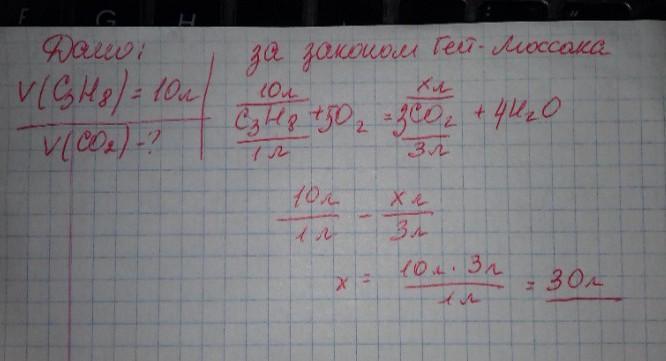 Дано:
V(C3H8) = 10л
V(CO2) - ?
за законом Гей-Люссака
10л хл
C3H8 + 5O2 = 3CO2 + 4H2O
1л 3л
10л/1л - хл/3л
х = 10л · 3л/1л = 30л